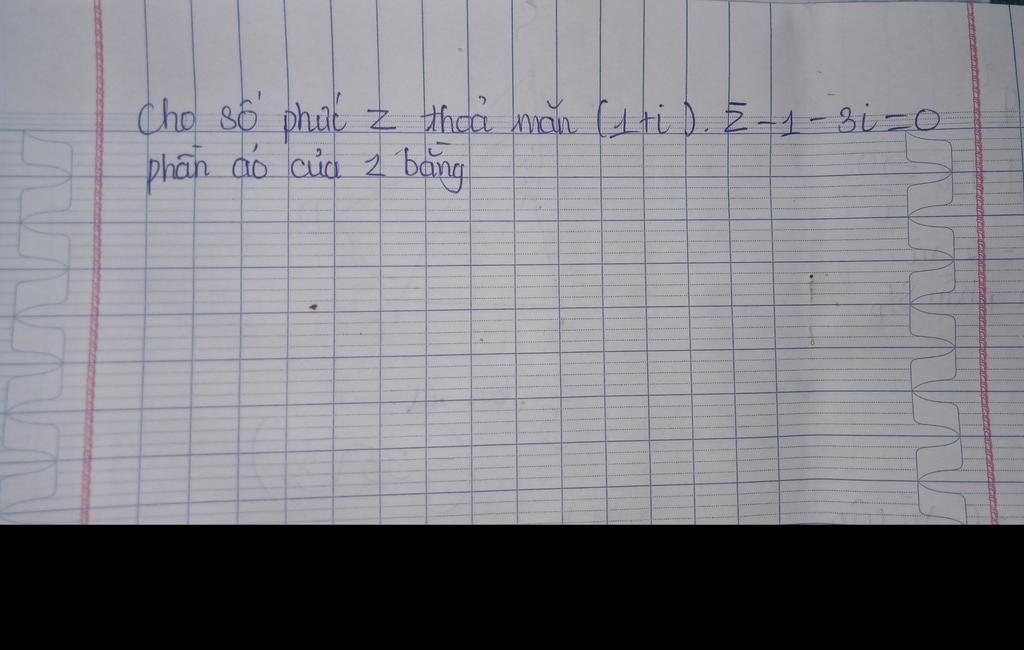 Cho số phức z thoả mãn (1+i). z̄ - 1 - 3i = 0
phần ảo của z bằng